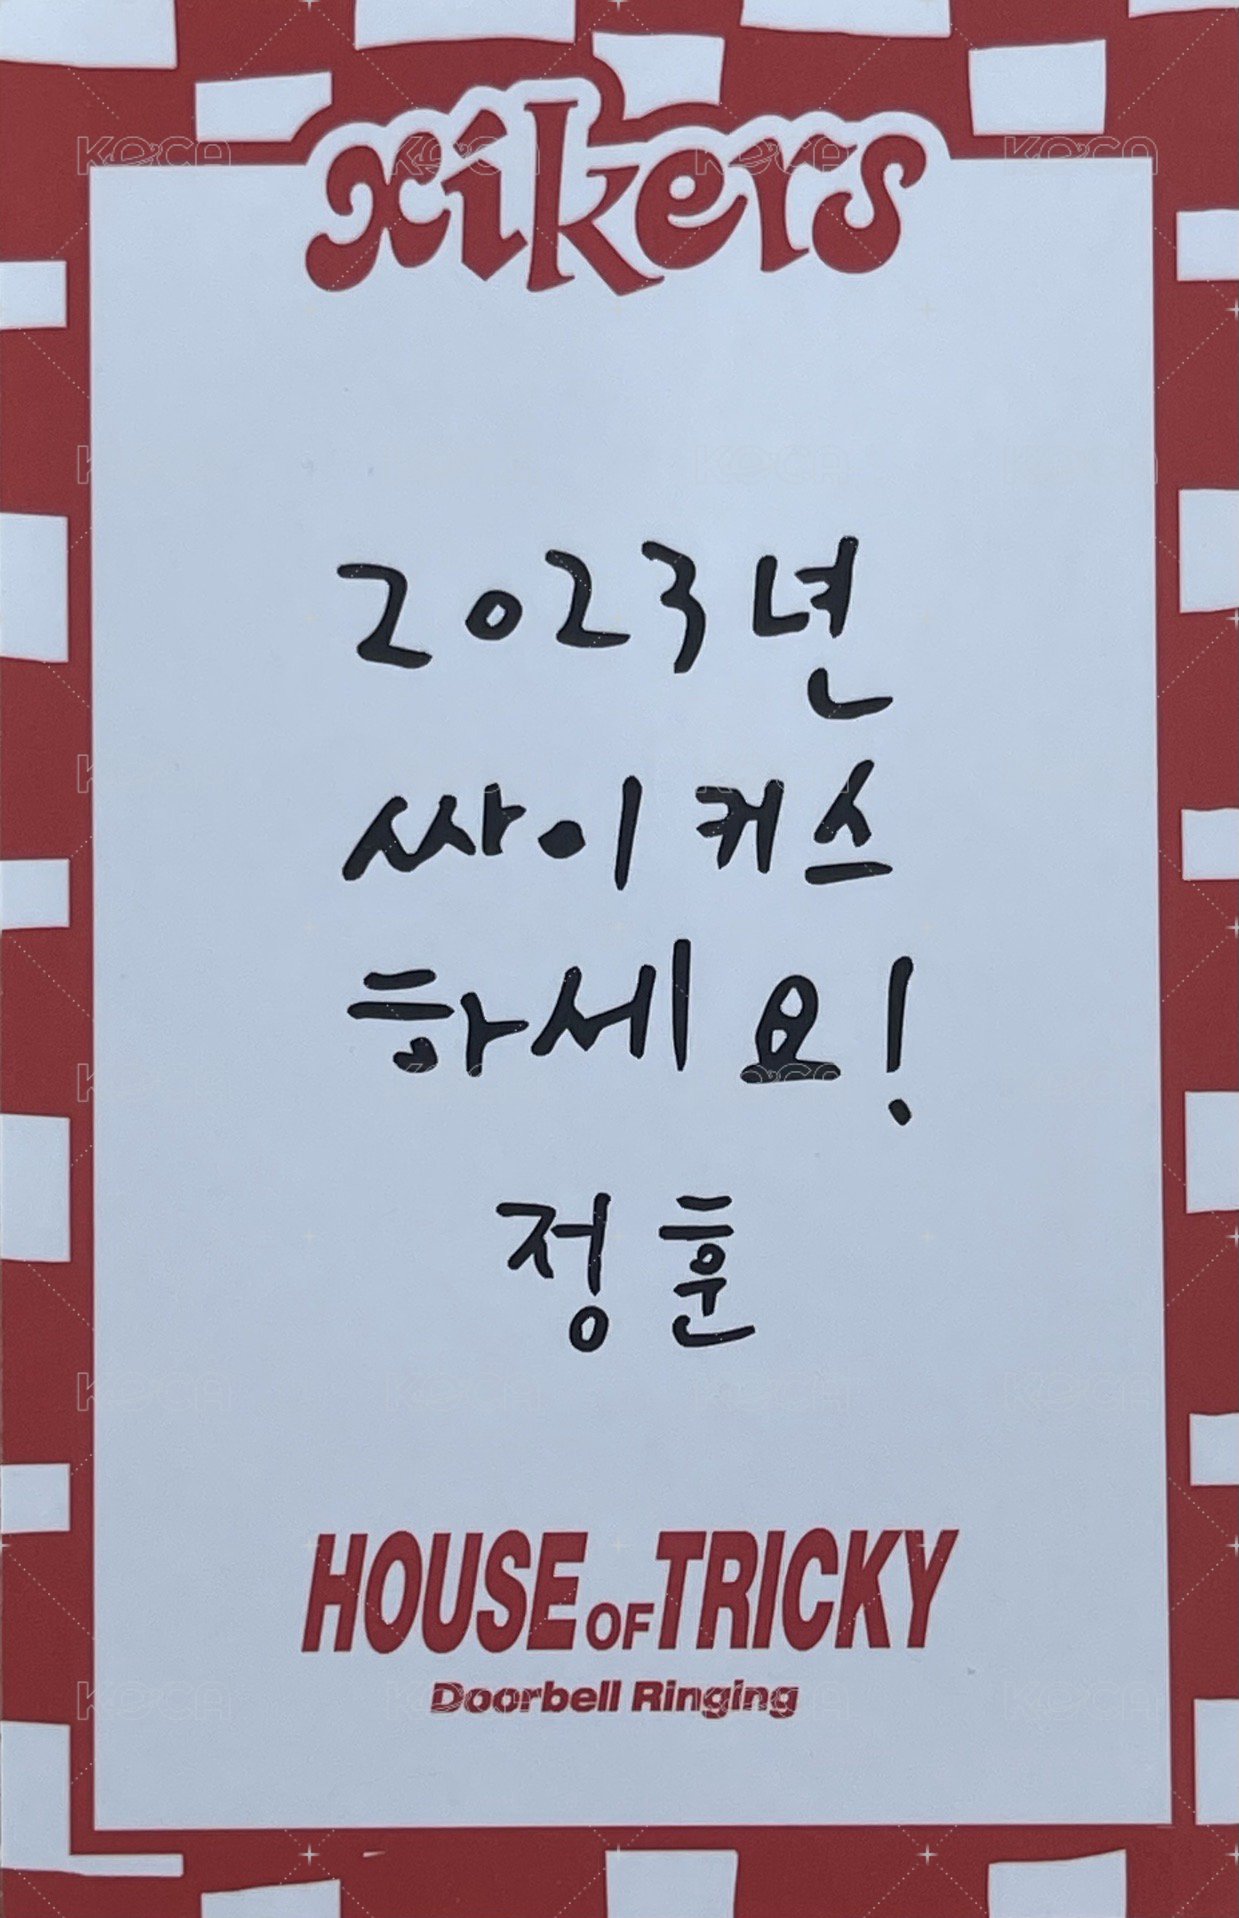 xikers
2023년
싸이커스
하세요!
정훈
HOUSE OF TRICKY
Doorbell Ringing